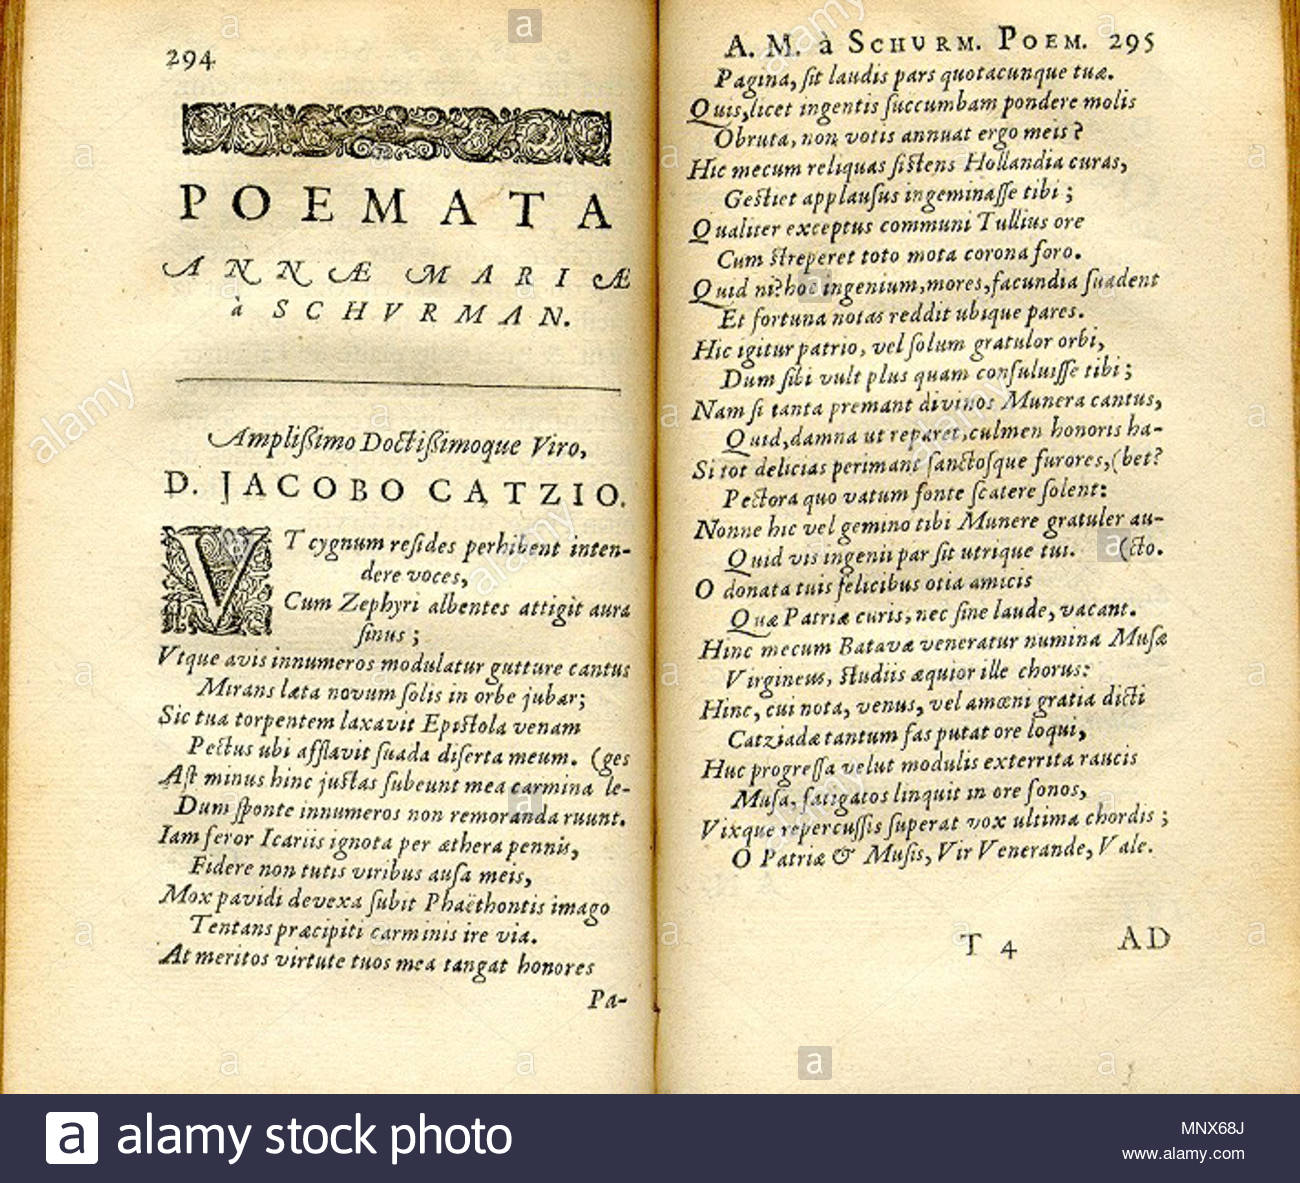 294
POEMATA
ANNÆ MARIÆ
à SCHVRMAN.
Amplißimo Doctißimoque Viro,
D. JACOBO CATZIO.
VT cygnum resides perhibent inten-
dere voces,
Cum Zephyri albentes attigit aura
sinus;
Vtque avis innumeros modulatur gutture cantus
Mirans læta novum solis in orbe jubar;
Sic tua torpentem laxavit Epistola venam
Pectus ubi afflavit suada diserta meum. (ges
Ast minus hinc justas subeunt mea carmina le-
Dum sponte innumeros non remoranda ruunt.
Iam feror Icariis ignota per æthera pennis,
Fidere non tutis viribus ausa meis,
Mox pavidi devexa subit Phaëthontis imago
Tentans præcipiti carminis ire via.
At meritos virtute tuos mea tangat honores
Pa-
A. M. à SCHVRM. POEM. 295
Pagina, sit laudis pars quotacunque tuæ.
Quis, licet ingentis succumbam pondere molis
Obruta, non votis annuat ergo meis?
Hic mecum reliquas sistens Hollandia curas,
Gestiet applausus ingeminasse tibi;
Qualiter exceptus communi Tullius ore
Cum streperet toto mota corona foro.
Quid ni? hoc ingenium, mores, facundia suadent
Et fortuna notas reddit ubique pares.
Hic igitur patrio, vel solum gratulor orbi,
Dum sibi vult plus quam consuluisse tibi;
Nam si tanta premant divinos Munera cantus,
Quid, damna ut reparet, culmen honoris ha-
Si tot delicias perimant sanctosque furores, (bet?
Pectora quo vatum fonte scatere solent:
Nonne hic vel gemino tibi Munere gratuler au-
Quid vis ingenii par sit utrique tui. (cto.
O donata tuis felicibus otia amicis
Quæ Patriæ curis, nec sine laude, vacant.
Hinc mecum Batavæ veneratur numina Musæ
Virgineus, studiis æquior ille chorus:
Hinc, cui nota, venus, vel amœni gratia dicti
Catziadæ tantum fas putat ore loqui,
Huc progressa velut modulis exterrita raucis
Musa, fatigatos linquit in ore sonos,
Vixque repercussis superat vox ultima chordis;
O Patriæ & Musis, Vir Venerande, Vale.
T 4 AD
alamy stock photo
MNX68J
www.alamy.com